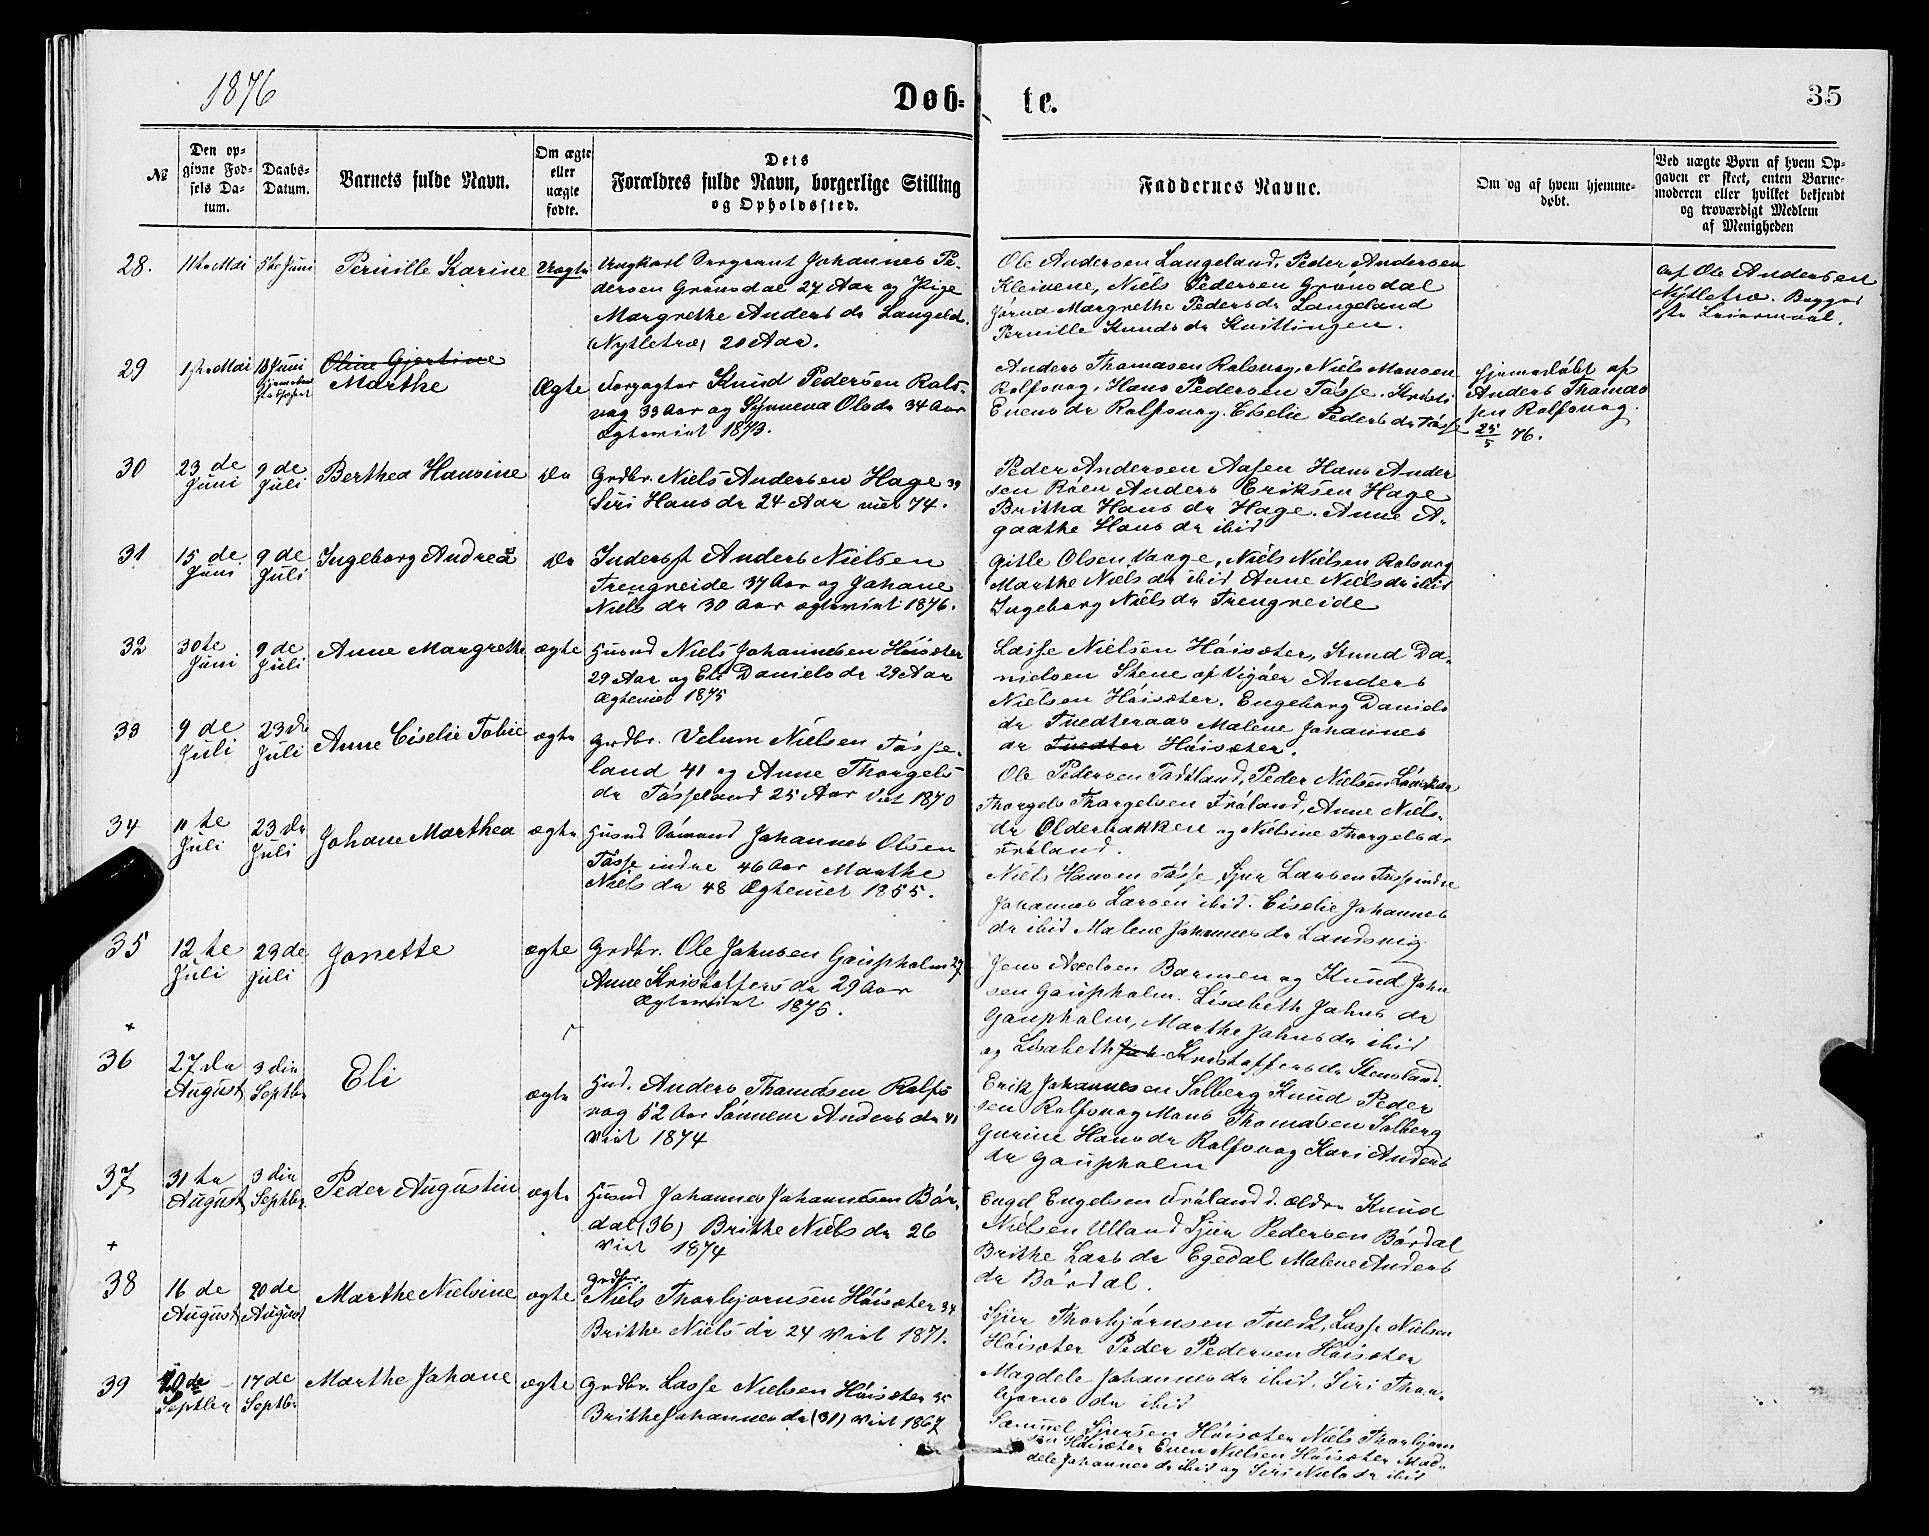 1876
Døb=te.
35
№
Den op-
givne Fød-
sels Da-
tum.
Daabs-
Datum.
Barnets fulde Navn.
Om ægte
eller
uægte
fødte.
Dets
Forældres fulde Navn, borgerlige Stilling
og Opholdssted.
Faddernes Navne.
Om og af hvem hjemme-
døbt.
Ved uægte Børn af hvem Op-
gaven er skeet, enten Barne-
moderen eller hvilket bekjendt
og troværdigt Medlem
af Menigheden
28.
11te Mai
5te Juni
Pernille Karine
Uægte
Ungkarl Sergeant Johannes Pe-
dersen Grønsdal 27 Aar og Pige
Margrethe Anders dr Langeld.
(Nytletræ) 20 Aar.
Ole Andersen Langeland, Peder Andersen
Kleivene, Niels Pedersen Grønsdal
Jørna Margrethe Peders dr Langeland
Pernille Knuds dr Knittingen.
af Ole Andersen
Nytletræ. Begges
1ste Leiermaal.
29
1ste Mai
18 Juni
Oline Gjertine
Marthe
Ægte
Forpagter Knud Pedersen Rols-
vog 33 Aar og Synneva Olsdr 34 Aar
Ægteviet 1873.
Anders Thomasen Rolsvog, Niels Monsen
Rolfsvog, Hans Pedersen Tøsse. Kristi
Evens dr Rolfsvog. Ciselie Peders dr Tøsse
hjemmedøbt af
Anders Thomas
sen Rolfsvog.
25/5 76.
30
23 de
Juni
9 de
Juli
Berthea Hansine
Do
Grdbr. Niels Andersen Hage 39
Siri Hans dr 24 Aar viet 74.
Peder Andersen Aasen Hans Ander
sen Røen Anders Eriksen Hage
Britha Hans dr Hage. Anne A-
gaathe Hans dr ibid
31
15 de
Juni
9 de
Juli
Ingeborg Andrea
Do
Inderst Anders Nielsen
Trengreide 37 Aar og Johane
Niels dr 30 Aar ægteviet 1876.
Gitle Olsen Vaage, Niels Nielsen Rolsvog
Marthe Niels dr ibid Anne Niels dr ibid
Ingeborg Niels dr Trengreide
32
30te
Juni
9 de
Juli
Anne Margrethe
ægte
Husmd Niels Johannesen Høisæter
29 Aar og Eli Daniels dr 29 Aar
Ægteviet 1875
Lasse Nielsen Høisæter, Knud Da-
nielsen Skene af Vigøer Anders
Nielsen Høisæter. Engeborg Daniels
dr Tvedteraas Malene Johannes
dr Tvedter Høisæter.
33
9 de
Juli
23 de
Juli
Anne Ciselie Tobie
ægte
Grdbr. Velum Nielsen Tøsse-
land 41 og Anne Thorgels
dr Tøsseland 25 Aar Viet 1870
Ole Pedersen Tadtland, Peder Nielsen
Thorgels Thorgelsen Frøland, Anne Niels-
dr Olderbakken og Nielsine Thorgels dr
Frøland.
34
11 te
Juli
23 de
Juli
Johane Marthea
ægte
Husmd Sømand Johannes Olsen
Tøsse indre 46 Aar Marthe
Niels dr 48 Ægteviet 1855.
Niels Hansen Tøsse, Sjur Larsen Tøsse indre
Johannes Larsen ibid. Ciselie Johannes
dr ibid Malene Johannes dr Landsvig
35
12 te
Juli
23 de
Juli
Jonette
ægte
Grdbr. Ole Johnsen Gaupholm 27
Anne Kristoffers dr 29 Aar
Ægteviet 1875.
Jens Axelsen Barmen og Knud John
sen Gaupholm. Lisabeth Johns dr
Gaupholm, Marthe Johns dr ibid
og Lisabeth Joh Kristoffers dr Stensland.
+
36
27 de
August
3 die
Septbr
Eli
ægte
Hmd. Anders Thomasen Rolfs
vog 52 Aar Sønneve Anders dr 41
Viet 1874
Erik Johannesen Solberg Knud Peder
sen Rolfsvog Mons Thomasen Solberg
Gurine Hans dr Rolfsvog Kari Anders
dr Gaupholm
37
31 te
August
3 die
Septbr.
Peder Augustin
ægte
Husmd Johannes Johannesen Bør-
dal (36) Brithe Niels dr 26
Viet 1874
Engel Engelsen Frøland d. ældre Knud
Nielsen Ulland Sjur Pedersen Børdal
Brithe Lars dr Egedal Malene Anders
dr Børdal.
+
38
16 de
August
20 de
August
Marthe Nielsine
ægte
Grdbr.
Niels Thorbjørnsen Høisæter 34
Brithe Niels dr 24 Viet 1871.
Sjur Thorbjørnsen Tvedt, Lasse Nielsen
Høisæter Peder Pedersen Høisæter
Magdele Johannes dr ibid. Siri Thor-
bjørns dr ibid
39
10 de
Septbr
17 de
Septbr
Marthe Johane
ægte
Grdbr. Lasse Nielsen Høisæter 35
Brithe Johannes dr (31) Viet 1867
Samuel Sjursen Høisæter Niels Thorbjørn
sen Høisæter Even Nielsen Høisæter Mag-
dele Johannes dr ibid og Siri Niels dr ibid